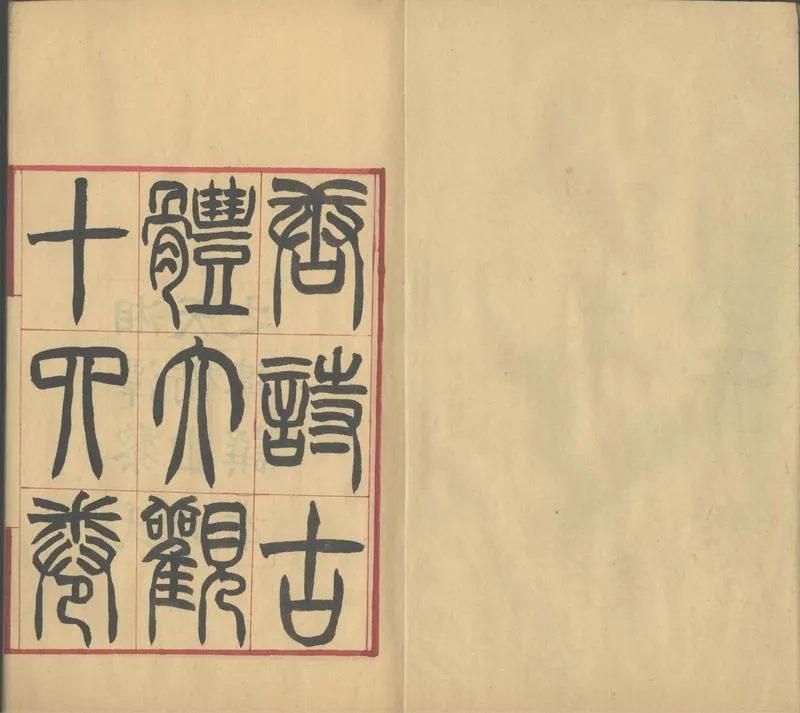 唐詩古
體大觀
十四卷